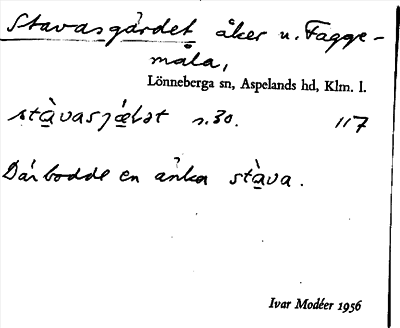 Stavasgärdet åker u. Fagge-
måla,
Lönneberga sn, Aspelands hd, Klm. l.
stà̱vasjǽ̱ḷət s. 30. 117
Där bodde en änka stà̱va.
Ivar Modéer 1956